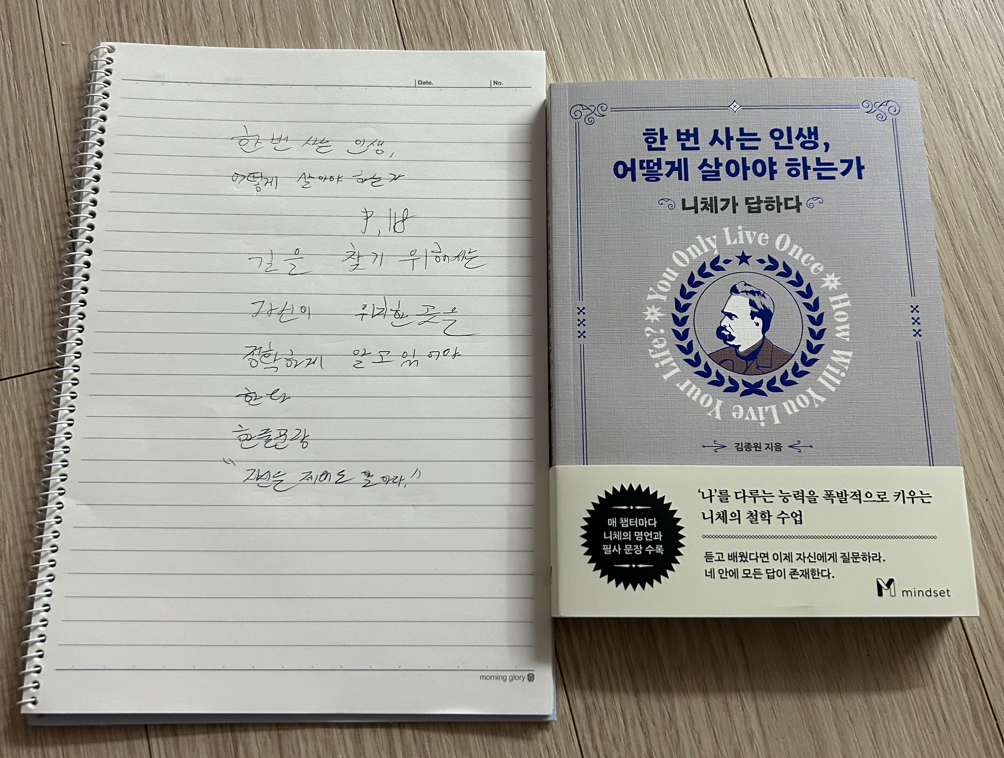 Date.
No.
한 번 사는 인생,
어떻게 살아야 하는가
P.18
길을 찾기 위해서는
자신의 위치한 곳을
정확하게 알고 있어야
한다
한줄문장
morning glory
한 번 사는 인생,
어떻게 살아야 하는가
니체가 답하다
You Only Live Once
How Will You Live Your Life?
김종원 지음
'나'를 다루는 능력을 폭발적으로 키우는
니체의 철학 수업
매 챕터마다
니체의 명언과
필사 문장 수록
듣고 배웠다면 이제 자신에게 질문하라.
네 안에 모든 답이 존재한다.
mindset